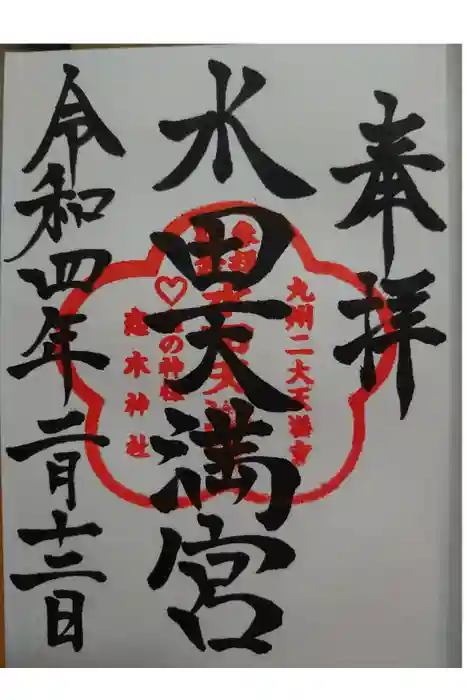 奉拝
水田天満宮
令和四年二月十三日
九州二大天満宮
♡の神様
恋木神社